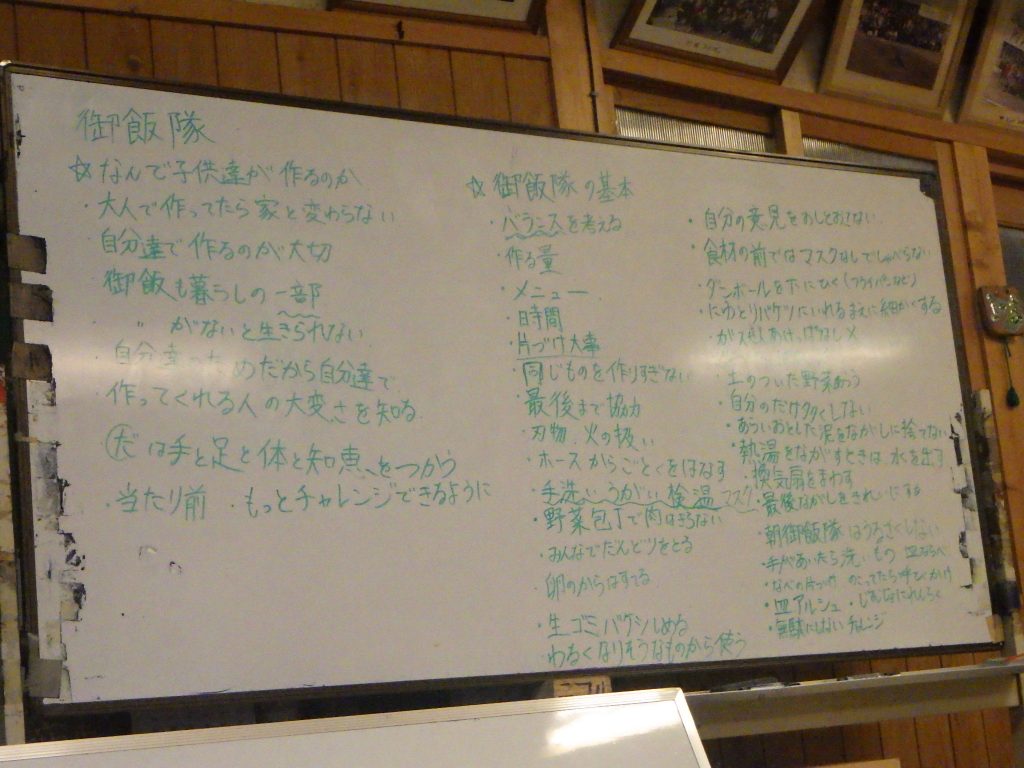 御飯隊
☆なんで子供達が作るのか
・大人で作ってたら家と変わらない
自分達で作るのが大切
・御飯も暮らしの一部
〃 がないと生きられない
・自分達のためだから自分達で
・作ってくれる人の大変さを知る
だは手と足と体と知恵をつかう
・当たり前 ・もっとチャレンジできるように
☆御飯隊の基本
・バランスを考える
・作る量
・メニュー
・時間
・片づけ大事
・同じものを作りすぎない
・最後まで協力
・刃物、火の扱い
・ホースからごとくをはなす
・手洗い、うがい、検温、マスク
・野菜包丁で肉はきらない
・みんなでだんどりをとる
・卵のからはすてる
・生ゴミバケツしめる
わるくなりそうなものから使う
・自分の意見をおしとおさない
・食材の前ではマスクなしでしゃべらない
・ダンボールを下にひく(フライパンなど)
・にわとりバケツにいれるまえに細かくする
ガスせんあけっぱなし×
・土のついた野菜あらう
・自分のだけ多くしない
・あらいおとした泥をながしに捨てない
・熱湯をながすときは水を出す
・換気扇をまわす
・最後ながしをきれいにする
・朝御飯隊はうるさくしない
・手があいたら洗いもの 皿ならべ
・なべの片づけ のこってたら呼びかけ
・皿アルシュ・じむしつにれんらく
・無駄にしないチャレンジ